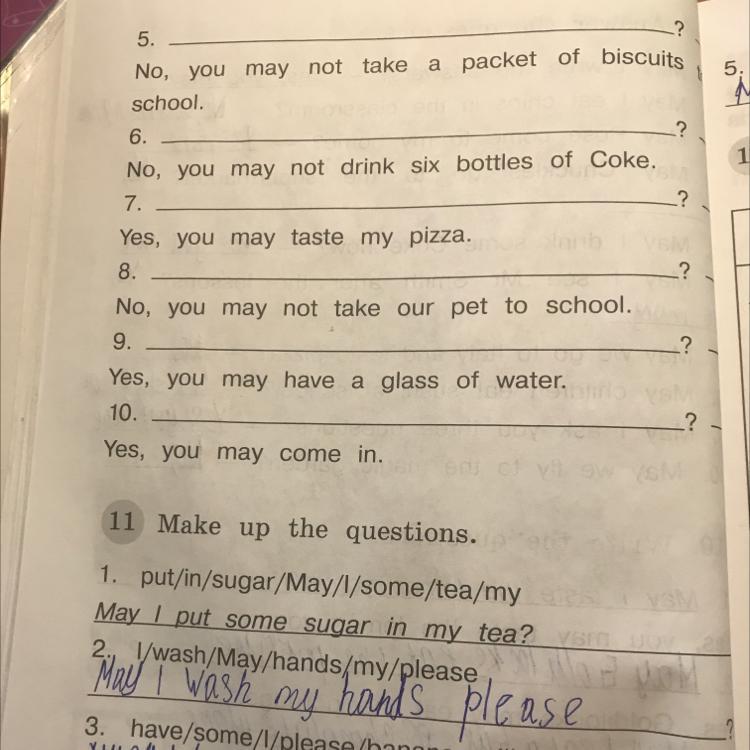 5. ?
No, you may not take a packet of biscuits
school.
6. ?
No, you may not drink six bottles of Coke.
7. ?
Yes, you may taste my pizza.
8. ?
No, you may not take our pet to school.
9. ?
Yes, you may have a glass of water.
10. ?
Yes, you may come in.
11 Make up the questions.
1. put/in/sugar/May/I/some/tea/my
May I put some sugar in my tea?
2. I/wash/May/hands/my/please
May I wash my hands please
?
3. have/some/I/please/
5.
1